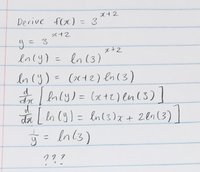 Derive f(x) = 3^{x+2}
y = 3^{x+2}
ln(y) = ln(3)^{x+2}
ln(y) = (x+2) ln(3)
d/dx [ ln(y) = (x+2) ln(3) ]
d/dx [ ln(y) = ln(3)x + 2ln(3) ]
1/y = ln(3)
???